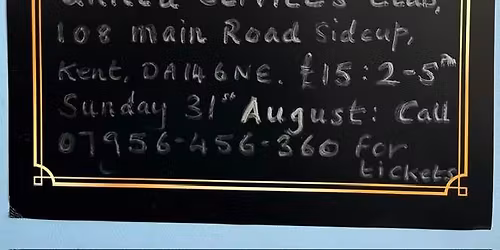 united Services Club,
108 main Road Sidcup,
Kent, DA14 6NE. £15 : 2-5pm
Sunday 31st August: Call
07956-456-360 for
tickets